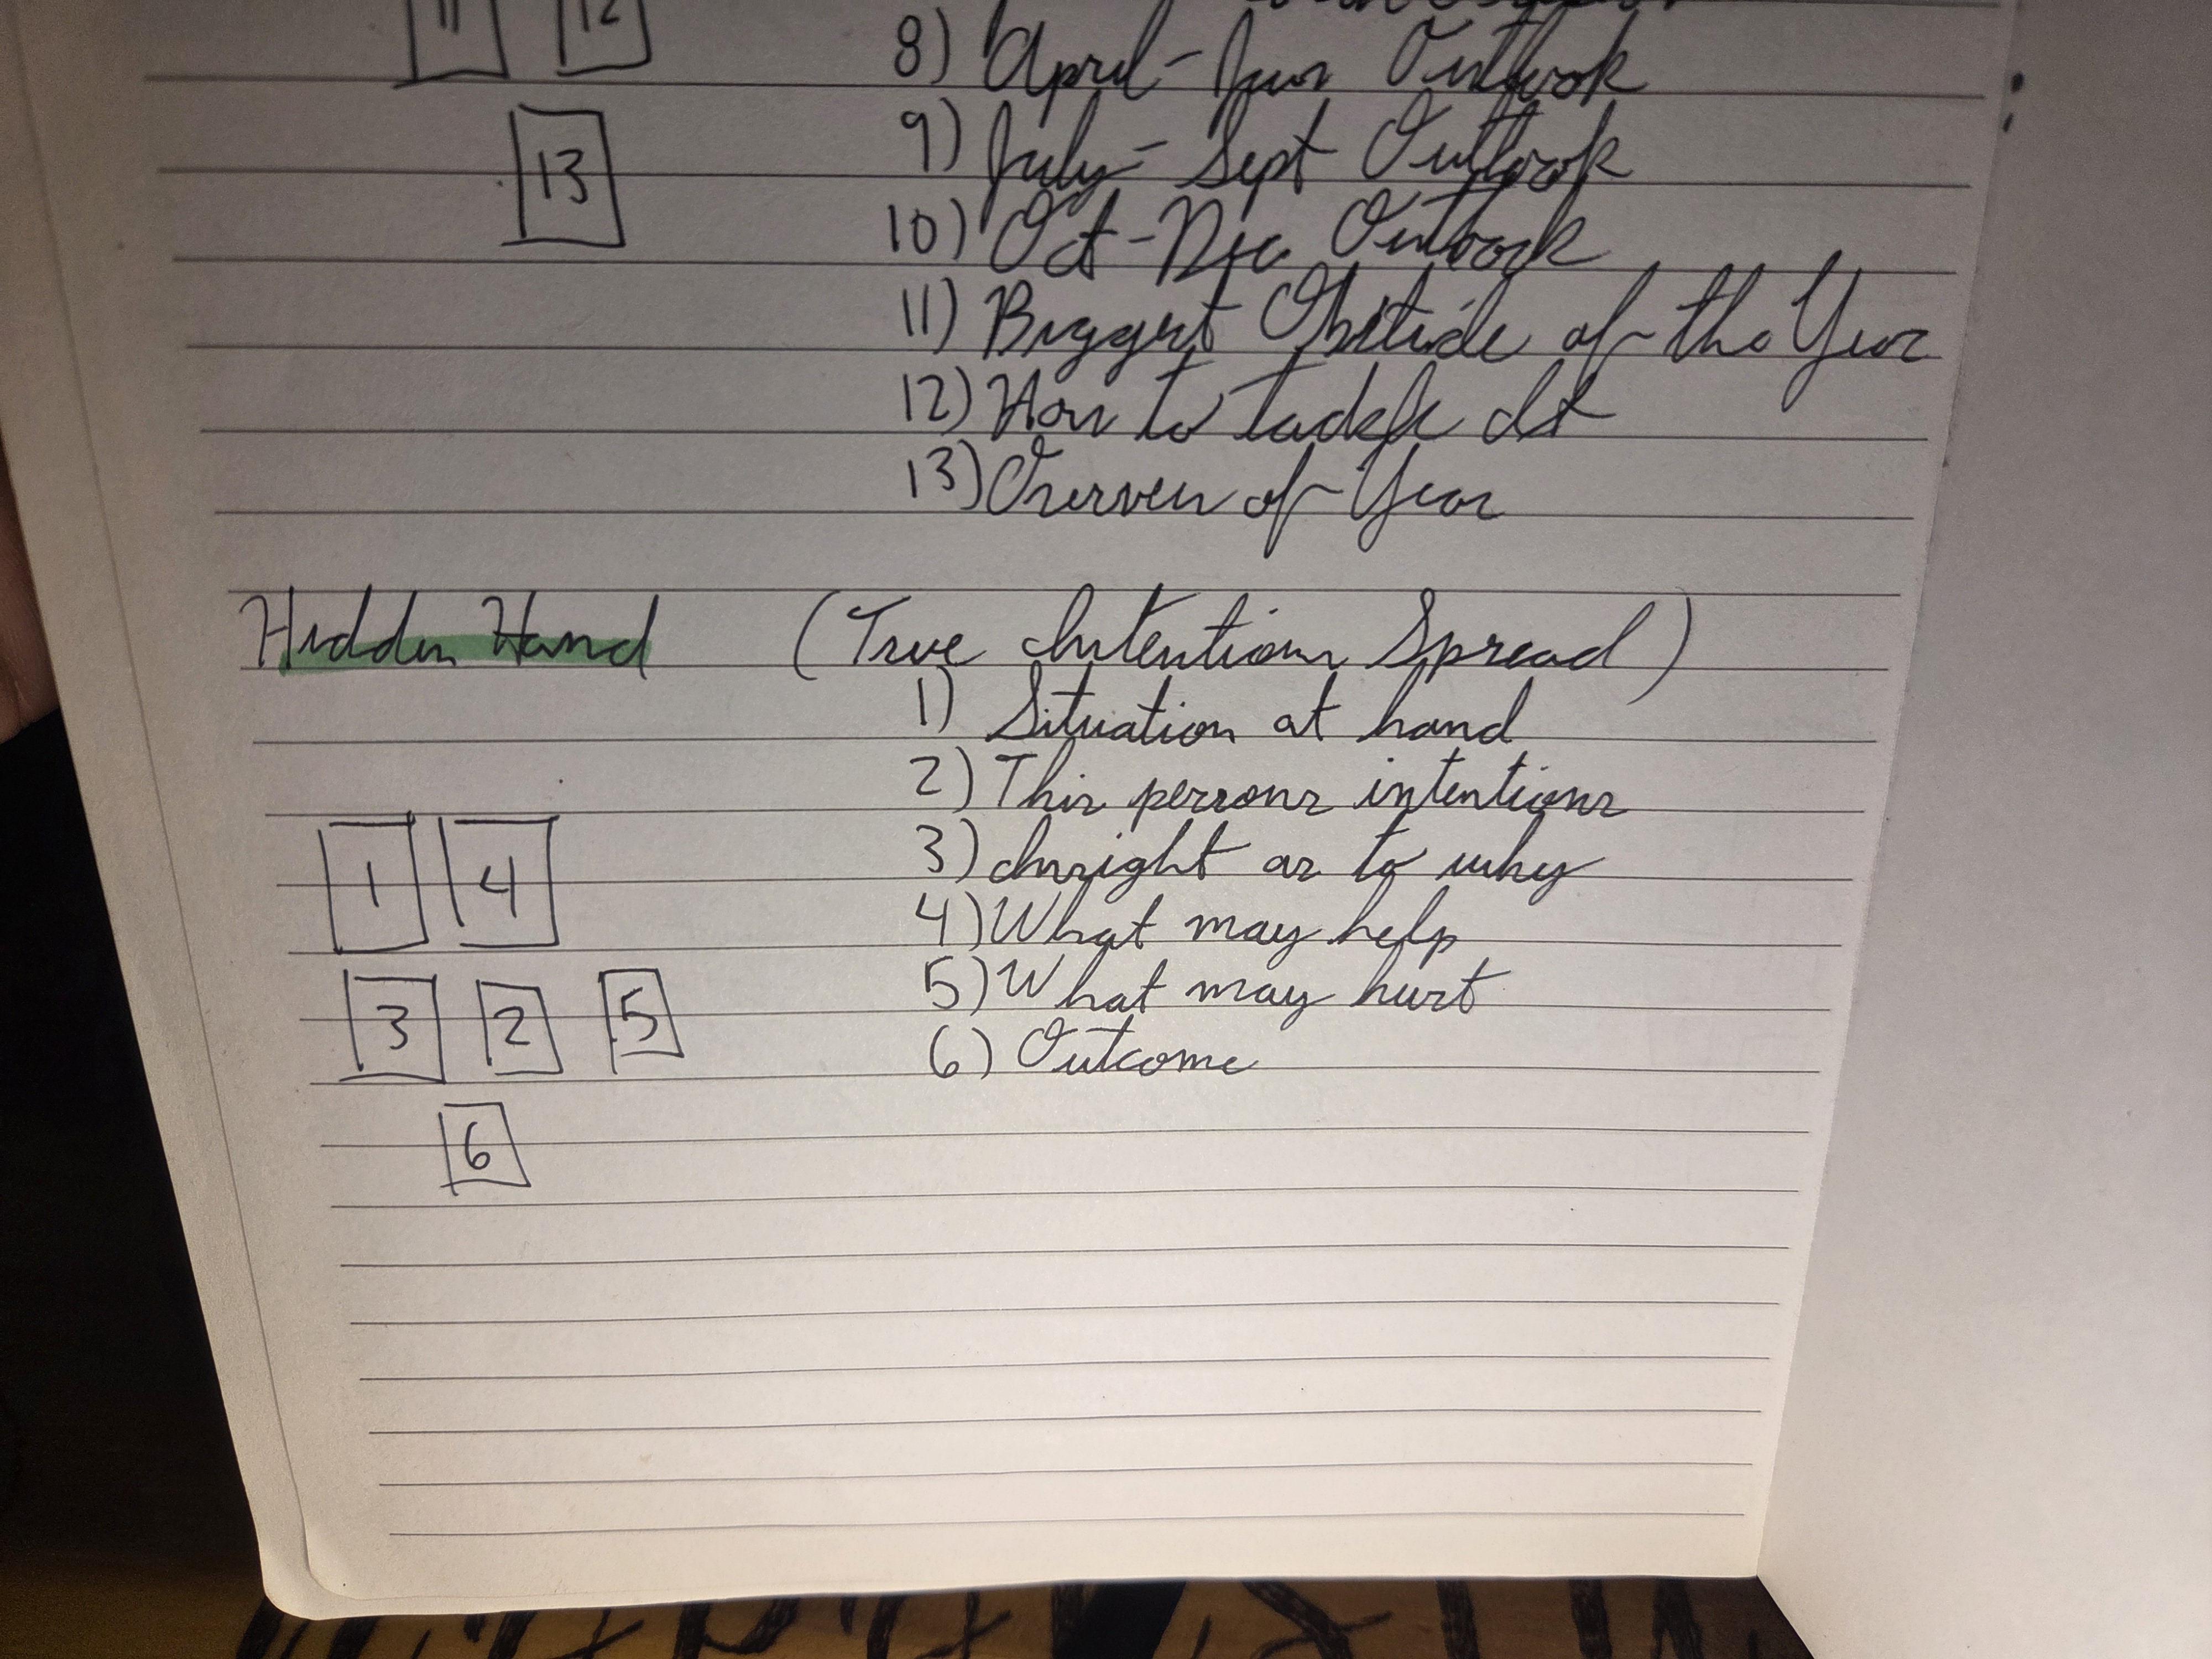 11 12
8) April - Jun Outlook
13
9) July - Sept Outlook
10) Oct - Dec Outlook
11) Biggest of the Year
12) How to tackle It
13) Overview of Year
Hidden Hand (True Intentions Spread)
1) Situation at hand
2) This persons intentions
1 4
3) Insight as to why
4) What may help
3 2 5
5) What may hurt
6) Outcome
6